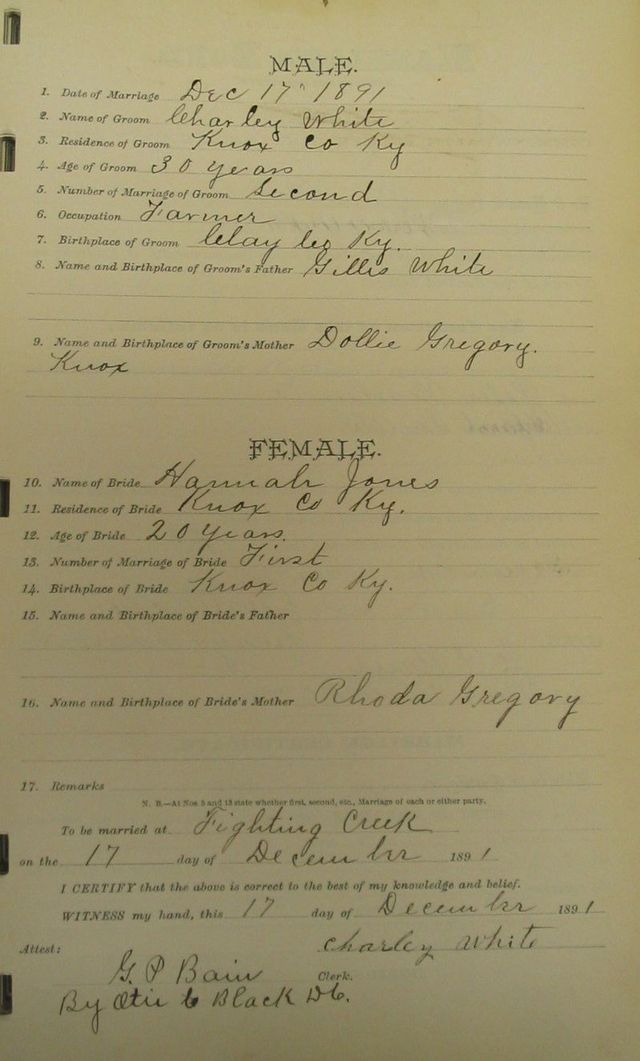 MALE.
1. Date of Marriage Dec 17" 1891
2. Name of Groom Charley White
3. Residence of Groom Knox Co Ky
4. Age of Groom 30 years
5. Number of Marriage of Groom Second
6. Occupation Farmer
7. Birthplace of Groom Clay Co Ky.
8. Name and Birthplace of Groom's Father Gillis White
9. Name and Birthplace of Groom's Mother Dollie Gregory.
Knox
FEMALE.
10. Name of Bride Hannah Jones
11. Residence of Bride Knox Co Ky.
12. Age of Bride 20 years.
13. Number of Marriage of Bride First
14. Birthplace of Bride Knox Co Ky.
15. Name and Birthplace of Bride's Father
16. Name and Birthplace of Bride's Mother Rhoda Gregory
17. Remarks
N. B.—At Nos 5 and 13 state whether first, second, etc., Marriage of each or either party.
To be married at Fighting Creek
on the 17 day of December 1891
I CERTIFY that the above is correct to the best of my knowledge and belief.
WITNESS my hand, this 17 day of December 1891
Attest: Charley White
G. P Bain Clerk.
By Black D.C.